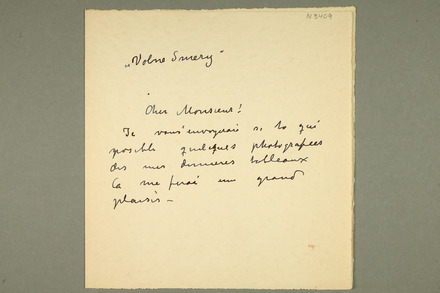 N 3404
„Volne Smery"
Cher Monsieur!
Je vous envoyrais si to qui
possible quelques photografiees
des mes dernieres tableaux
Ca me ferai un grand
plaisis –